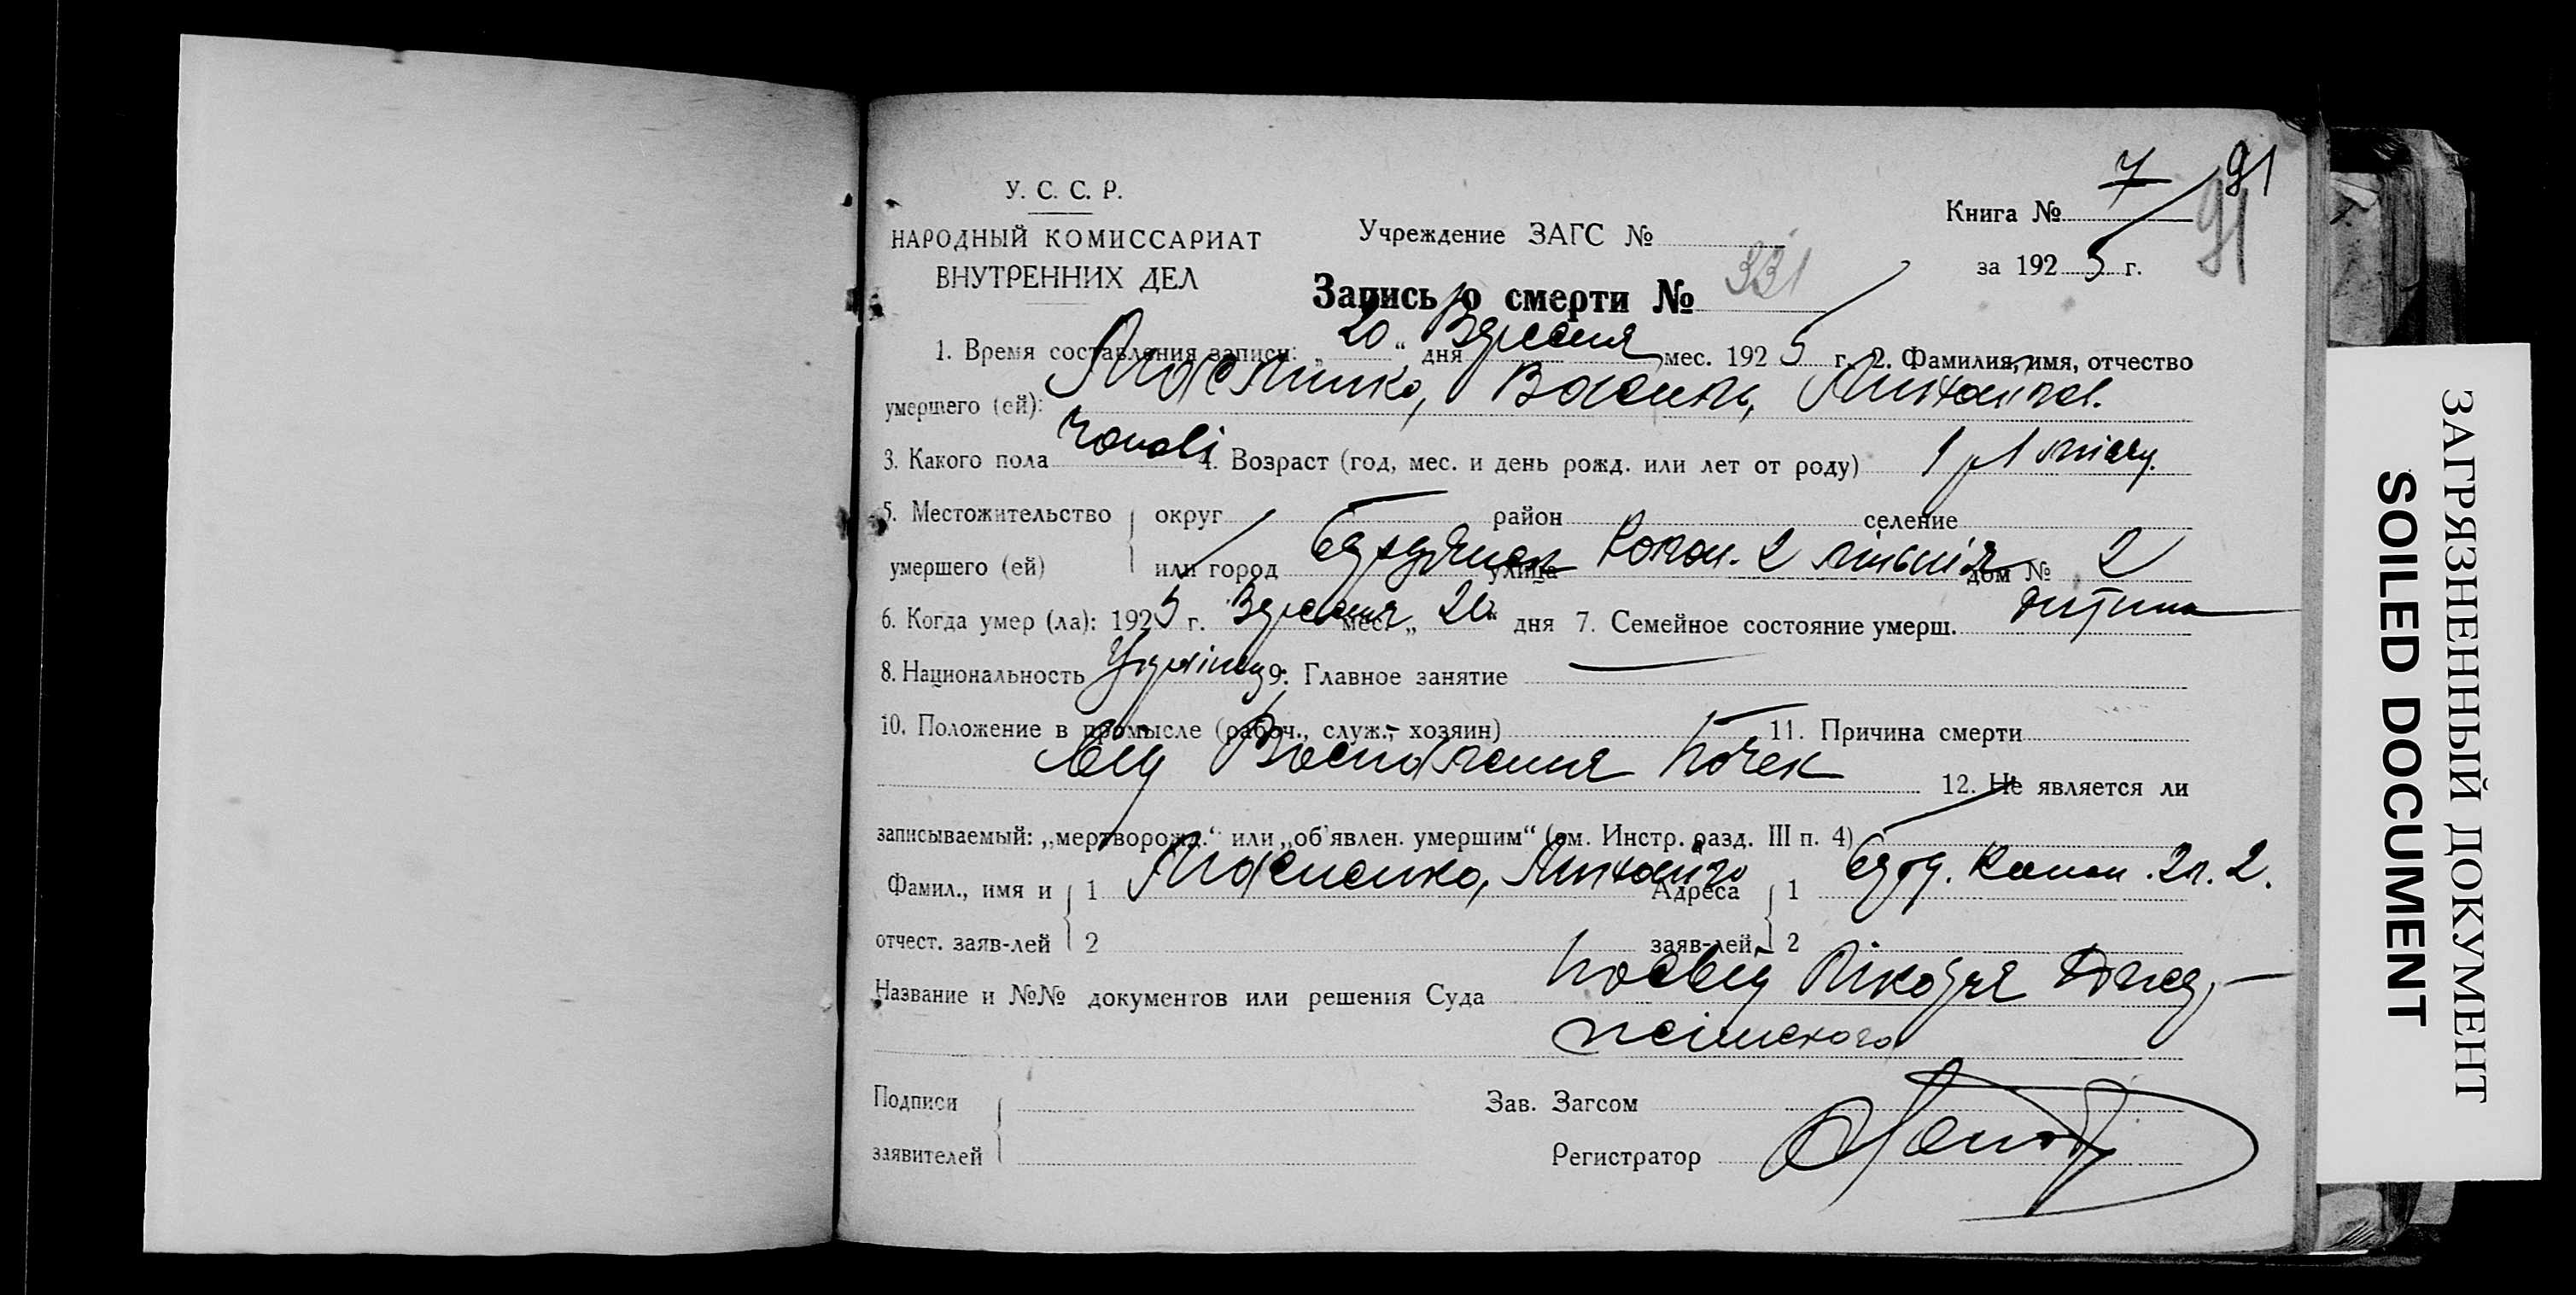 У. С. С. Р.
НАРОДНЫЙ КОМИССАРИАТ
ВНУТРЕННИХ ДЕЛ
Учреждение ЗАГС №
Книга № 7 91
91
за 1925 г.
Запись о смерти № 331
1. Время составления записи: „20“ дня Вересня мес. 1925 г. 2. Фамилия, имя, отчество
умершего (ей): Василь,
3. Какого пола чолові 4. Возраст (год, мес. и день рожд. или лет от роду) 1 р 1 місяц.
5. Местожительство округ — район селение
умершего (ей) или город Бердянськ улица Колон. 2 лінія дом № 2
6. Когда умер (ла): 1925 г. Вересня мес. „20“ дня 7. Семейное состояние умерш. дитина
8. Национальность Українец 9. Главное занятие —
10. Положение в промысле (рабоч., служ., хозяин) — 11. Причина смерти
Від Воспаления почек 12. Не является ли
записываемый: „мертворожд.“ или „об'явлен. умершим“ (см. Инстр. разд. III п. 4)
Фамил., имя и 1 Адреса 1 Берд. Колон. 2 л. 2.
отчест. заяв-лей 2 заяв-лей 2
Название и №№ документов или решения Суда посвід Лікаря
Подписи Зав. Загсом
заявителей Регистратор
ЗАГРЯЗНЕННЫЙ ДОКУМЕНТ
SOILED DOCUMENT